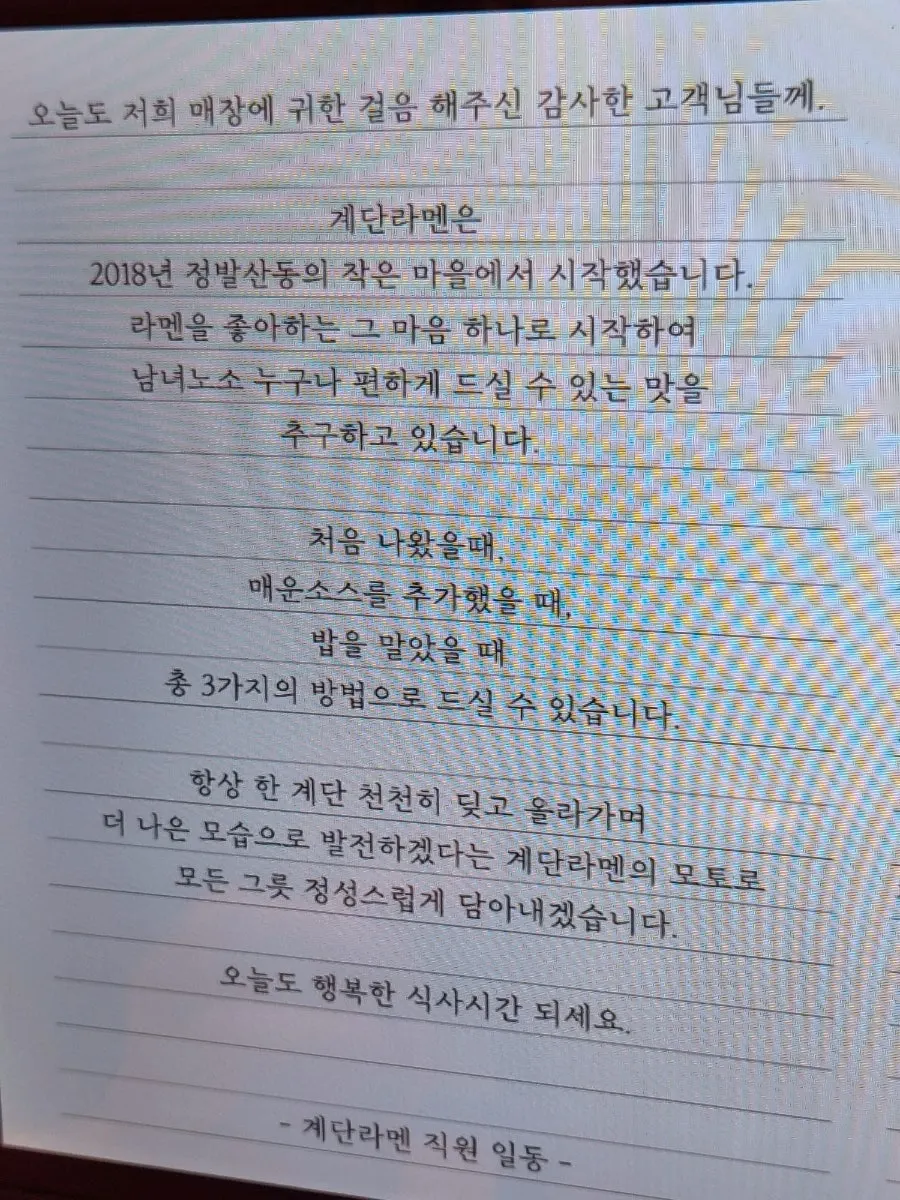 오늘도 저희 매장에 귀한 걸음 해주신 감사한 고객님들께.
계단라멘은
2018년 정발산동의 작은 마을에서 시작했습니다.
라멘을 좋아하는 그 마음 하나로 시작하여
남녀노소 누구나 편하게 드실 수 있는 맛을
추구하고 있습니다.
처음 나왔을때,
매운소스를 추가했을 때,
밥을 말았을 때
총 3가지의 방법으로 드실 수 있습니다.
항상 한 계단 천천히 딪고 올라가며
더 나은 모습으로 발전하겠다는 계단라멘의 모토로
모든 그릇 정성스럽게 담아내겠습니다.
오늘도 행복한 식사시간 되세요.
- 계단라멘 직원 일동 -